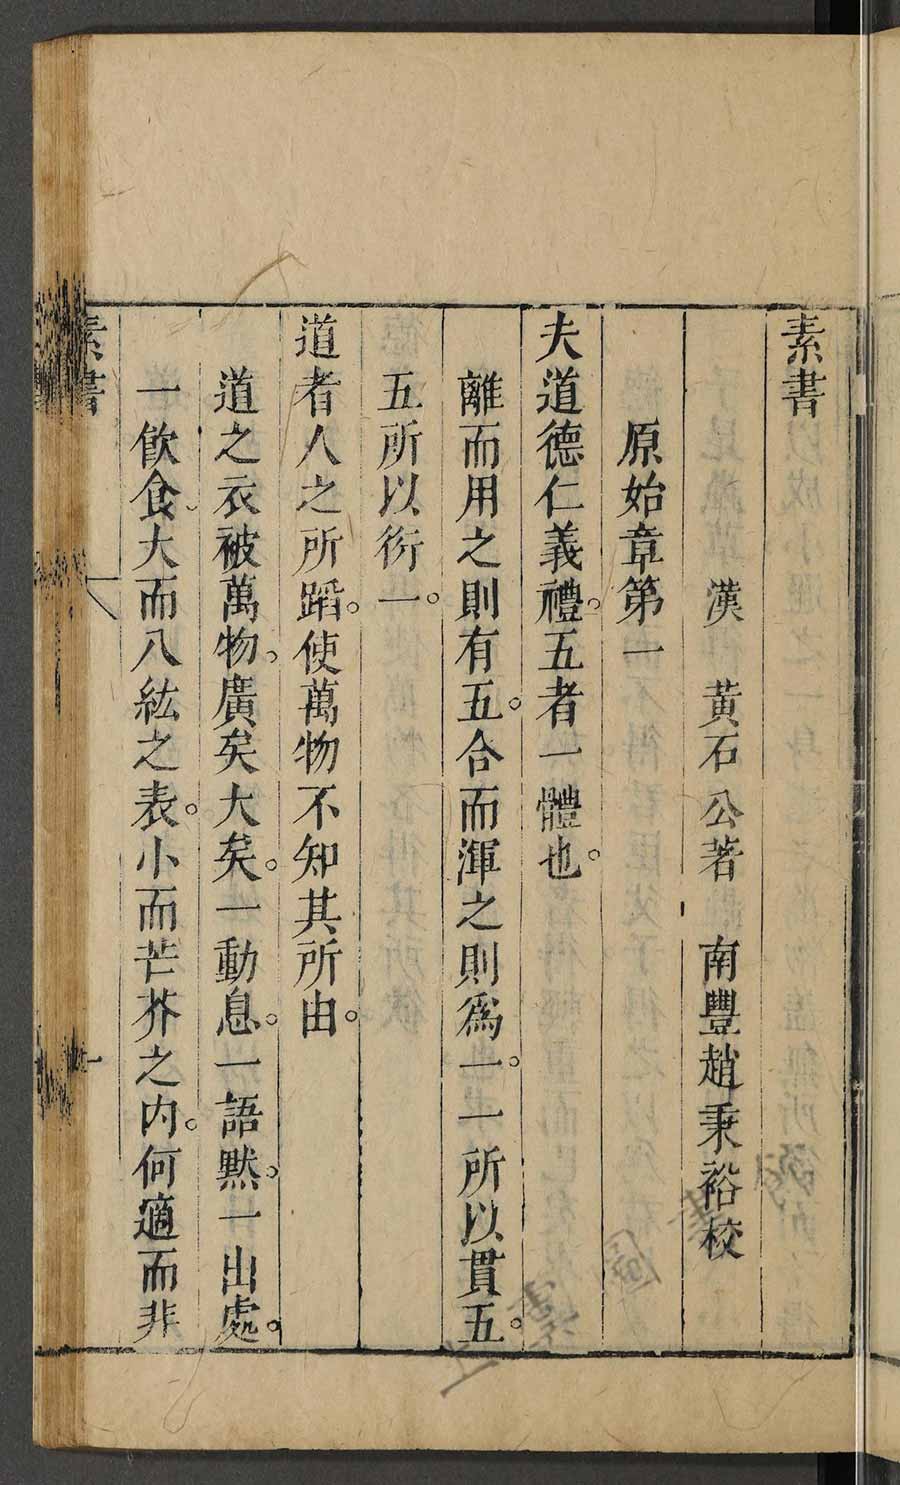 素書
漢 黃石公著 南豐趙秉裕校
原始章第一
夫道德仁義禮。五者一體也。
離而用之則有五。合而渾之則爲一。一所以貫五。
五所以衍一。
道者人之所蹈。使萬物不知其所由。
道之衣被萬物。廣矣大矣。一動息。一語默。一出處。
一飲食、大而八紘之表。小而芒芥之内。何適而非
素書
一